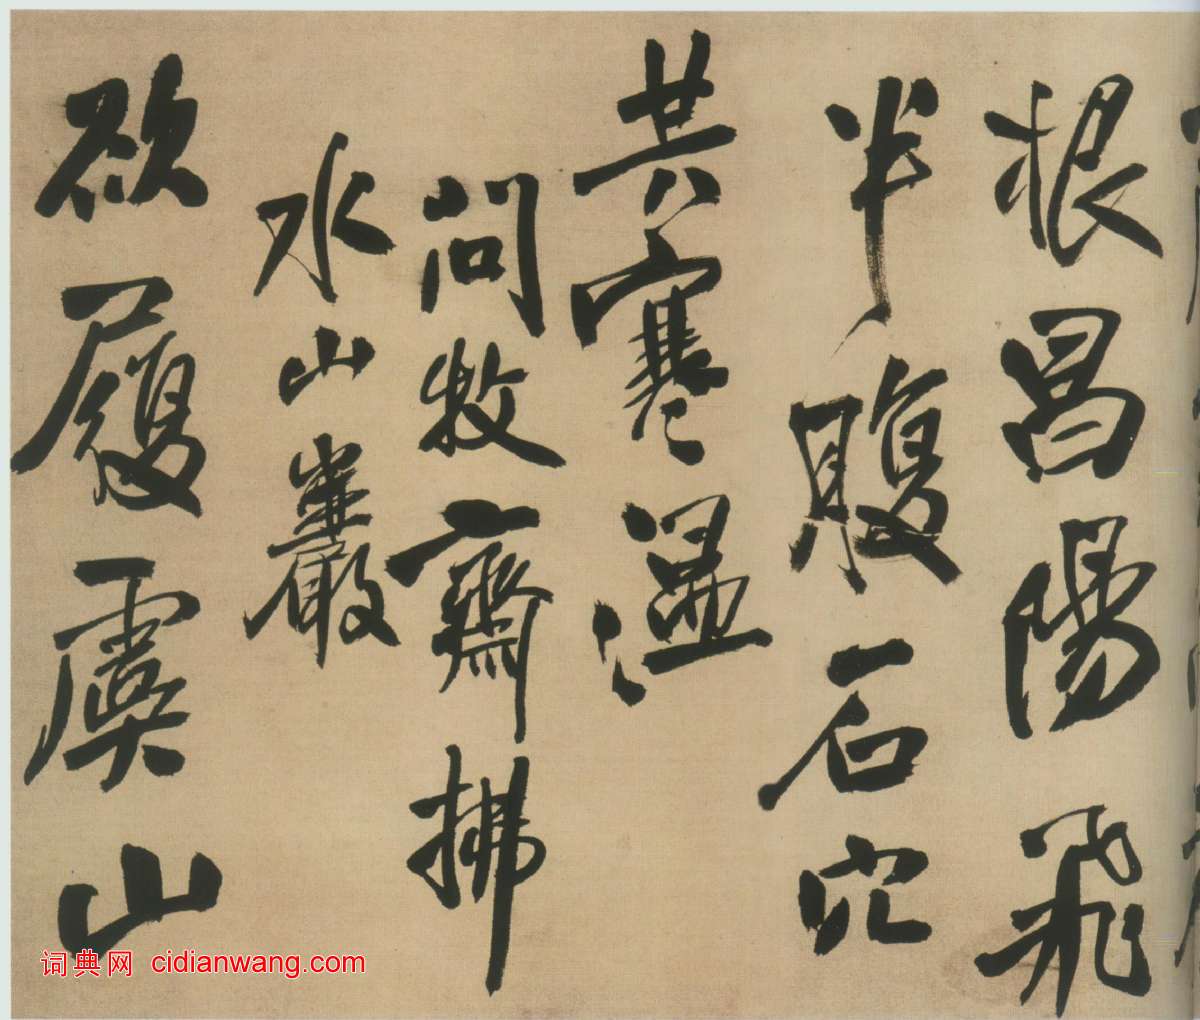 根昌陽飛
半腹石穴
共寒溫
問牧齋拂
水山巖
欲履虞山
词典网 cidianwang.com